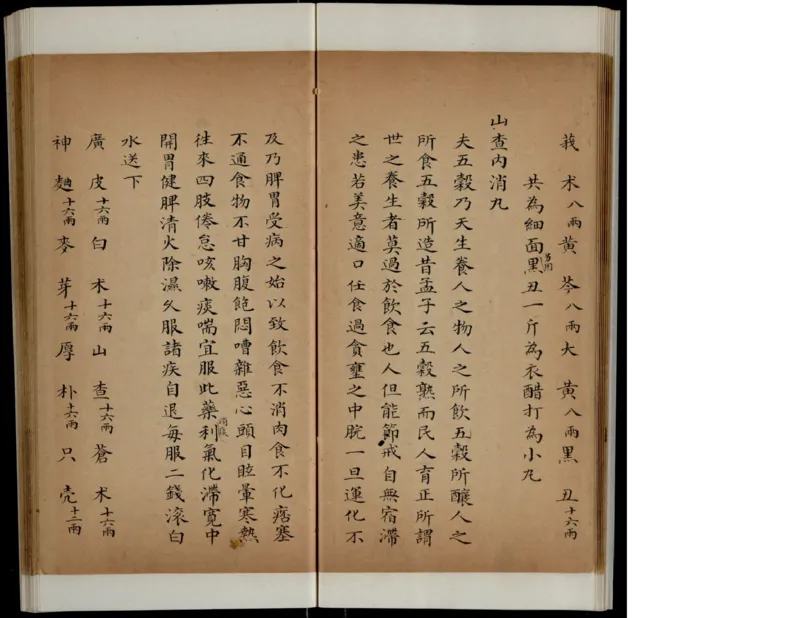 莪朮八兩黃芩八兩大黃八兩黑丑十六兩
共為細面黑丑一斤為衣醋打為小丸
山查內消丸
夫五穀乃天生養人之物人之所飲五穀所釀人之
所食五穀所造昔孟子云五穀熟而民人育正所謂
世之養生者莫過於飲食也人但能節戒自無宿滯
之患若美意適口任食過貪壅之中脘一旦運化不
及乃脾胃受病之始以致飲食不消肉食不化痞塞
不通食物不甘胸腹飽悶嘈雜惡心頭目眩暈寒熱
往來四肢倦怠咳嗽痰喘宜服此藥利氣化滯寬中
開胃健脾清火除濕久服諸疾自退每服二錢滾白
水送下
廣皮十六兩白朮十六兩山查十六兩蒼朮十六兩
神麯十六兩麥芽十六兩厚朴十六兩只壳十二兩